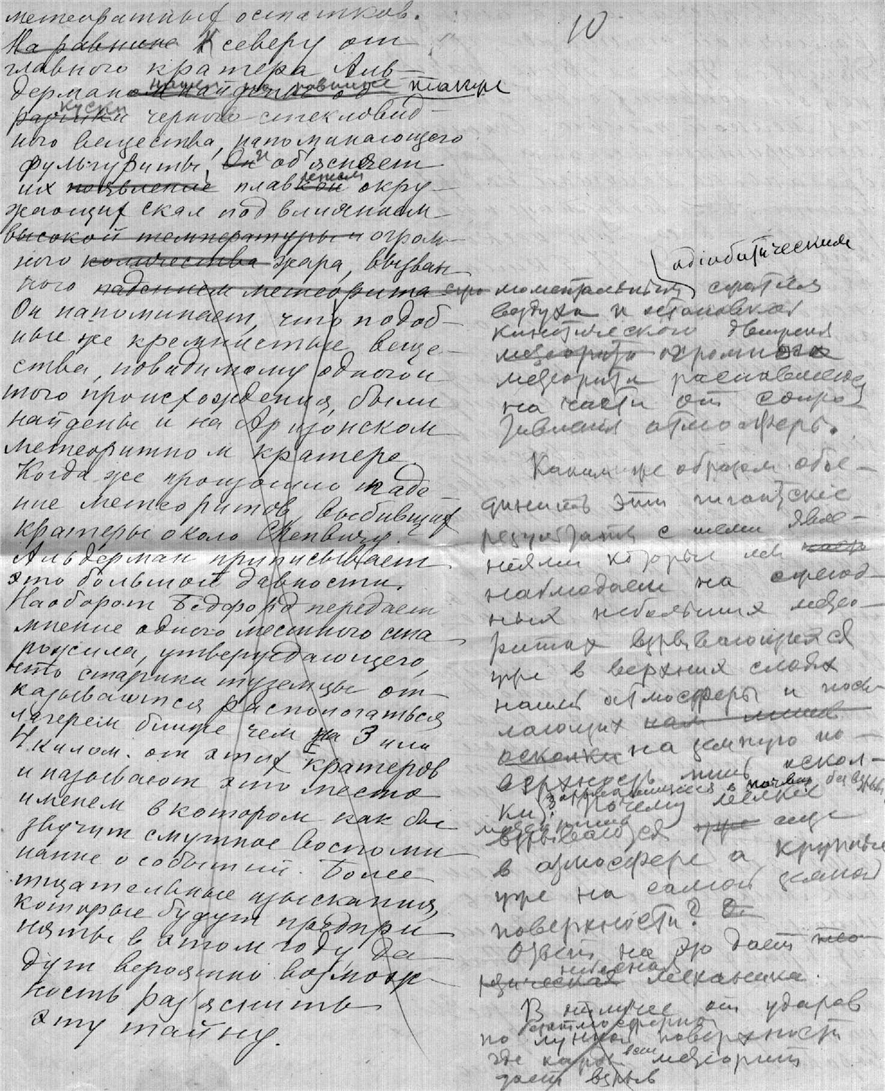 10
метеоритных остатков.
На равнине К северу от
главного кратера Аль-
дерман найдены также
куски
черного стекловид-
ного вещества, напоминающего
фульгуриты, и об'ясняет
их появление плавлением окру-
жающих скал под влиянием
высокой температуры и огром-
ного количества жара, вызван
ного падением метеорита
Он напоминает, что подоб-
ные же кремнистые веще-
ства, повидимому одного и
того происхождения, были
найдены и на Аризонском
метеоритном кратере
Когда же произошло паде-
ние метеоритов, выбивших
кратеры около Генбюри?
Альдерман приписывает
это большой давности.
Наоборот Бедфорд передает
мнение одного местного ста
рожила, утверждающего,
что старики туземцы от-
казываются располагаться
лагерем ближе чем на 3 или
4 килом. от этих кратеров
и называют это место
именем в котором как бы
звучит смутное воспоми
нание о событии. Более
тщательные изыскания,
которые будут предпри
няты в этом году да-
дут вероятно возмож-
ность раз'яснить
эту тайну.
адіабатическим
моментальным сжатием
воздуха и остановкой
кинетического движения
метеорита огромного
метеорита распавшегося
на части от сопро-
тивления атмосферы.
Каким же образом объе-
динить эти гигантские
результаты с теми явле-
ниями которые мы
наблюдаем на
ных небольших метео-
ритах взрывающихся
уже в верхних слоях
нашей атмосферы и посы
лающих нам лишь
осколки на земную по-
верхность лишь оскол-
ки, зарывающиеся в почву без взрыва
? Почему мелкие
метеориты
взрываются уже еще
в атмосфере а крупные
уже на самой земной
поверхности?
Ответ на это дает
небесная
механика.
В отличие от ударов
по лунной поверхности
где каждый метеорит
дает взрыв